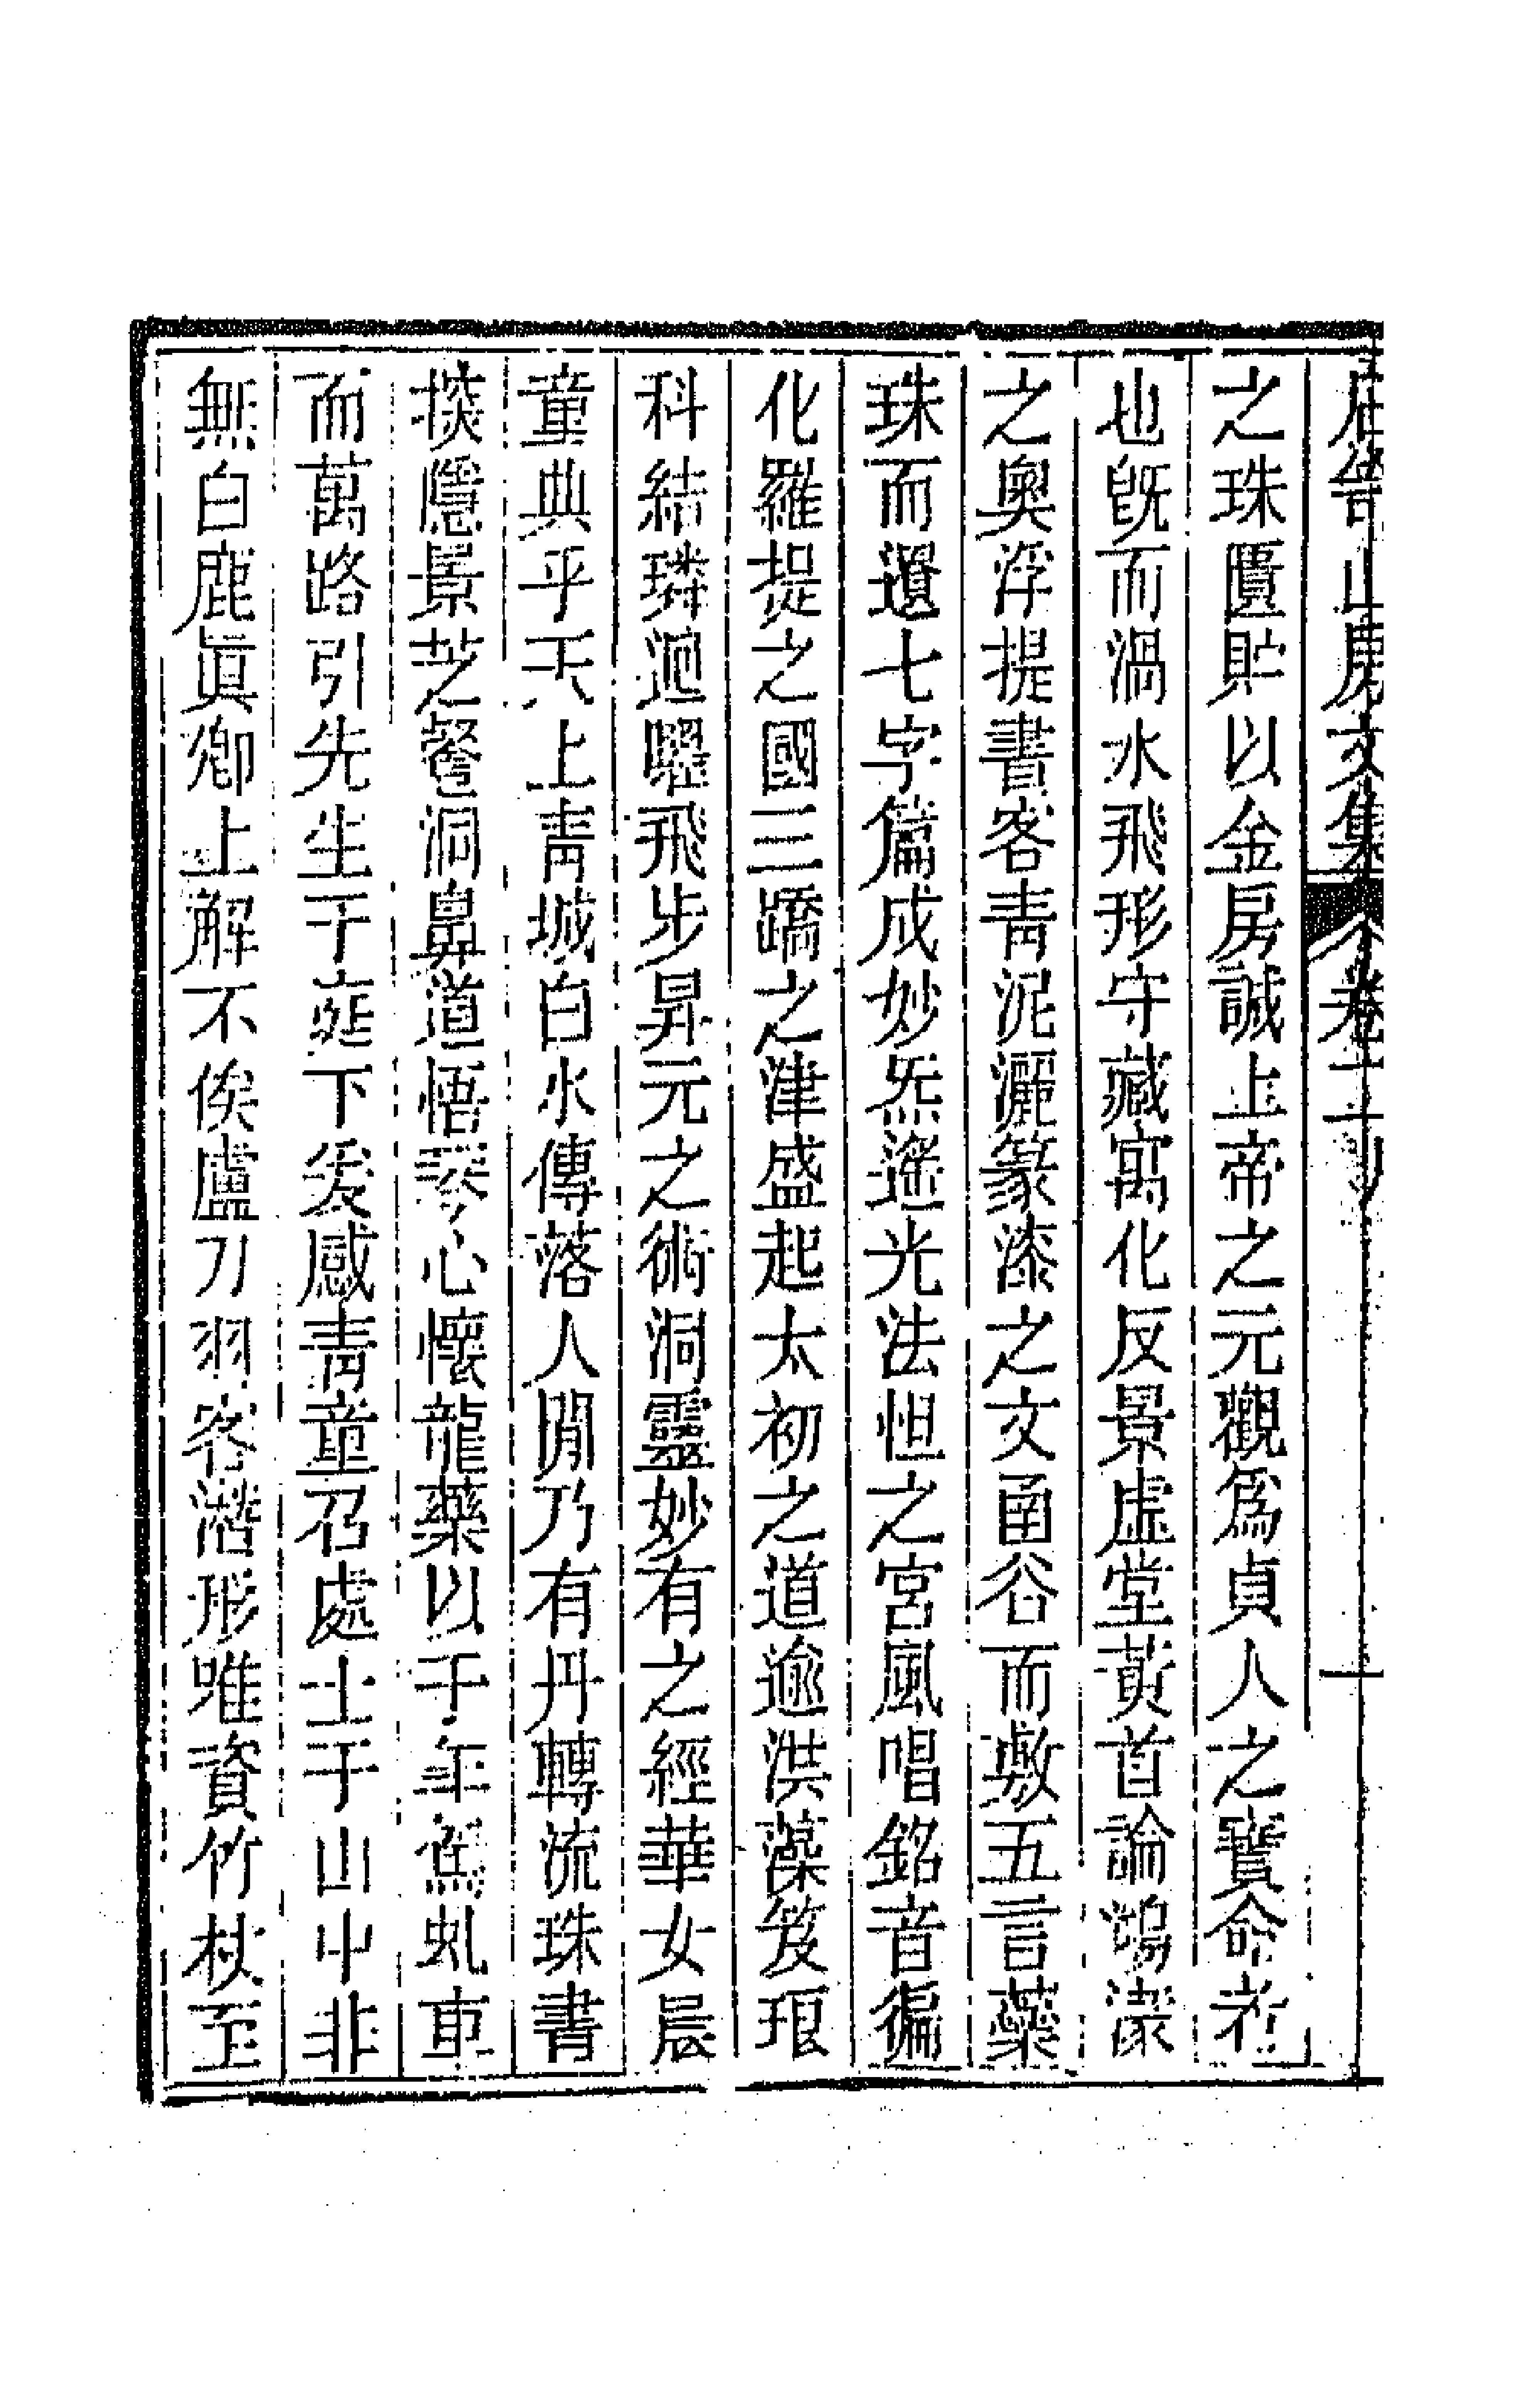 石笥山房文集 卷二 十
之珠匱貯以金房誠上帝之元觀爲貞人之寶命者
也旣而渦水飛形守藏寓化反景虛堂黃首論鴻濛
之奧浮提書客靑泥灑篆漆之文甬谷而敷五言藥
珠而選七字篇成妙炁遙光法怛之宮風唱銘音徧
化羅堤之國三蹻之津盛起太初之道逾洪藻笈琅
科結璘𨒪曜飛步昇元之術洞靈妙有之經華女晨
童典乎天上靑城白水傳落人閒乃有丹轉流珠書
掞隱景芝餐洞鼻道悟琴心懷龍藥以千年駕虬車
而萬路引先生于庭下爰感靑童召處士于山中非
無白鹿眞卿上解不俟盧刀羽客潛形唯資竹杖至